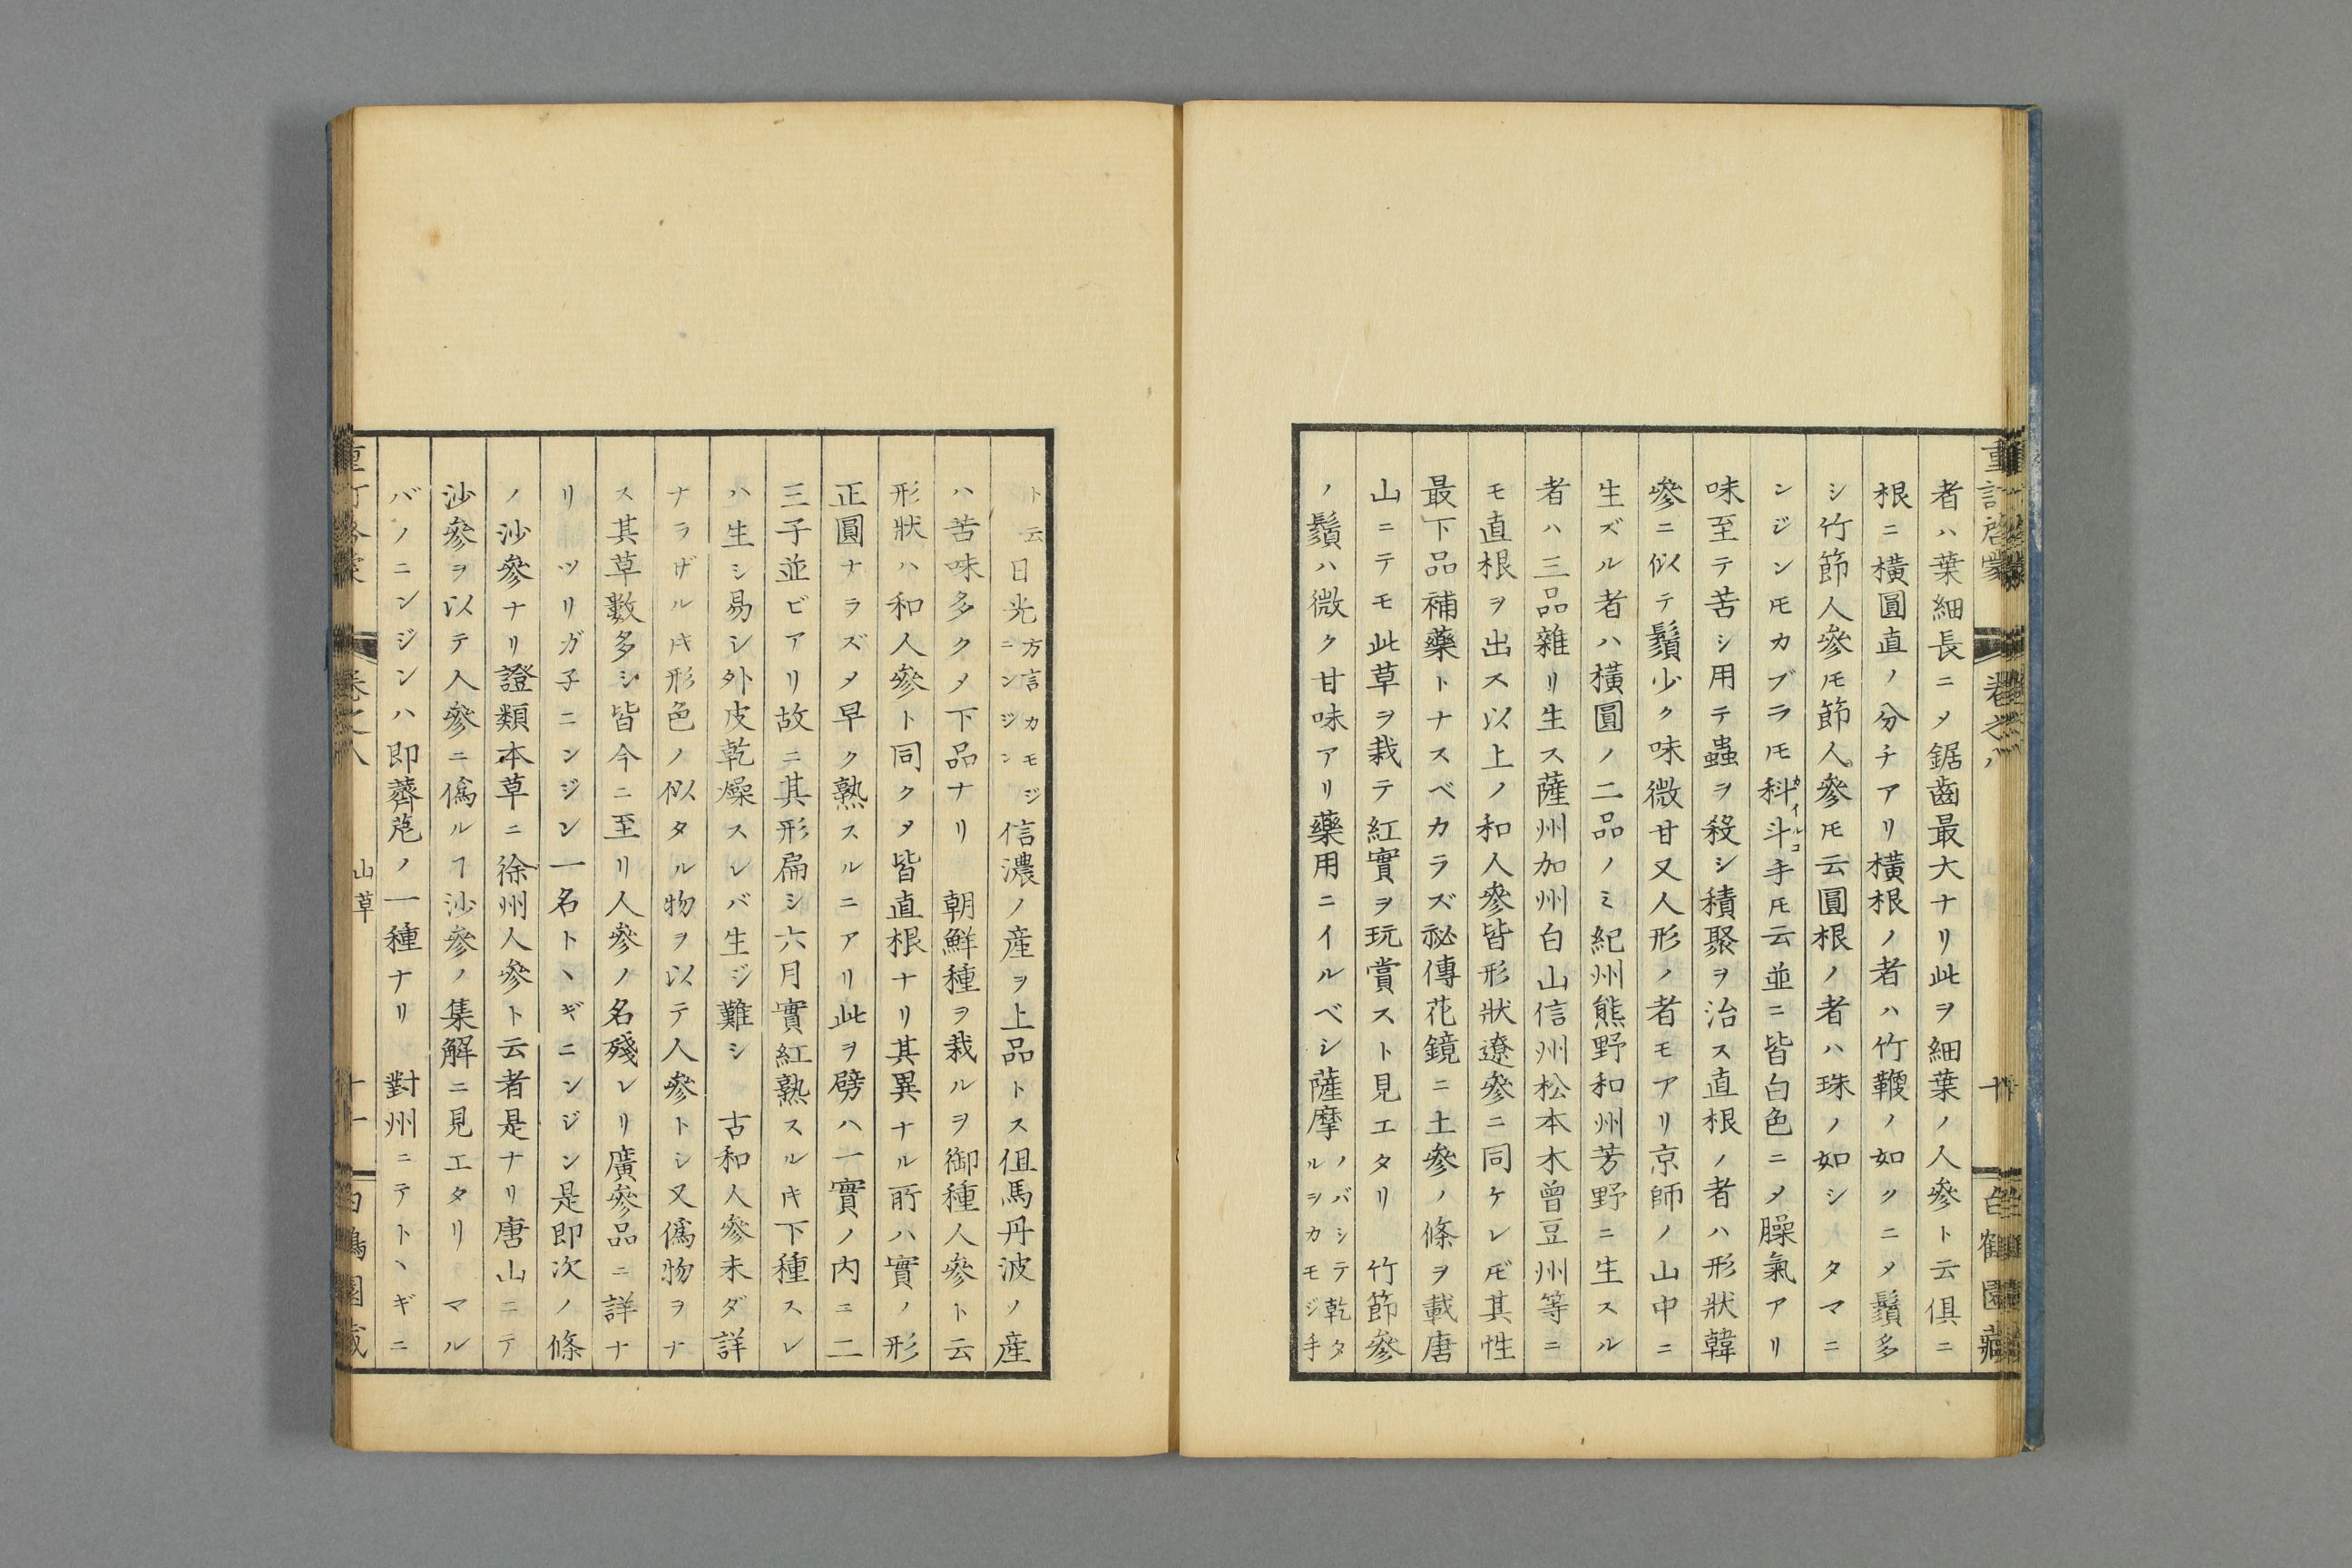 重訂啓蒙 卷之八 十 白鶴園藏
者ハ葉細長ニメ鋸齒最大ナリ此ヲ細葉ノ人參ト云俱ニ
根ニ橫圓直ノ分チアリ橫根ノ者ハ竹鞭ノ如クニメ鬚多
シ竹節人參𪜈節人參𪜈云圓根ノ者ハ珠ノ如シ タマニ
ンジン𪜈カブラ𪜈科斗手𪜈云並ニ皆白色ニメ臊氣アリ
カイルコ
味至テ苦シ用テ蟲ヲ殺シ積聚ヲ治ス直根ノ者ハ形狀韓
參ニ似テ鬚少ク味微甘又人形ノ者モアリ京師ノ山中ニ
生ズル者ハ橫圓ノ二品ノミ紀州熊野和州芳野ニ生スル
者ハ三品雜リ生ス薩州加州白山信州松本木曾豆州等ニ
モ直根ヲ出ス以上ノ和人參皆形狀遼參ニ同ケレ𪜈其性
最下品補藥トナスベカラズ祕傳花鏡ニ土參ノ條ヲ載唐
山ニテモ此草ヲ栽テ紅實ヲ玩賞スト見エタリ 竹節參
ノ鬚ハ微ク甘味アリ藥用ニイルベシ薩摩ノバシテ乾タルヲカモジ手
ト云日光方言カモジニンジン信濃ノ産ヲ上品トス伹馬丹波ノ産
ハ苦味多クメ下品ナリ 朝鮮種ヲ栽ルヲ御種人參ト云
形狀ハ和人參ト同クメ皆直根ナリ其異ナル所ハ實ノ形
正圓ナラズメ早ク熟スルニアリ此ヲ劈ハ一實ノ内ニ二
三子並ビアリ故ニ其形扁シ六月實紅熟スルキ下種スレ
ハ生シ易シ外皮乾燥スレバ生ジ難シ 古和人參未ダ詳
ナラザルキ形色ノ似タル物ヲ以テ人參トシ又僞物ヲナ
ス其草數多シ皆今ニ至リ人參ノ名殘レリ廣參品ニ詳ナ
リ ツリガ子ニンジン一名トヽギニンジン是即次ノ條
ノ沙參ナリ證類本草ニ徐州人參ト云者是ナリ唐山ニテ
沙參ヲ以テ人參ニ僞ルヿ沙參ノ集解ニ見エタリ マル
バノニンジンハ即薺苨ノ一種ナリ 對州ニテトヽギニ
卷之八 山草 十一